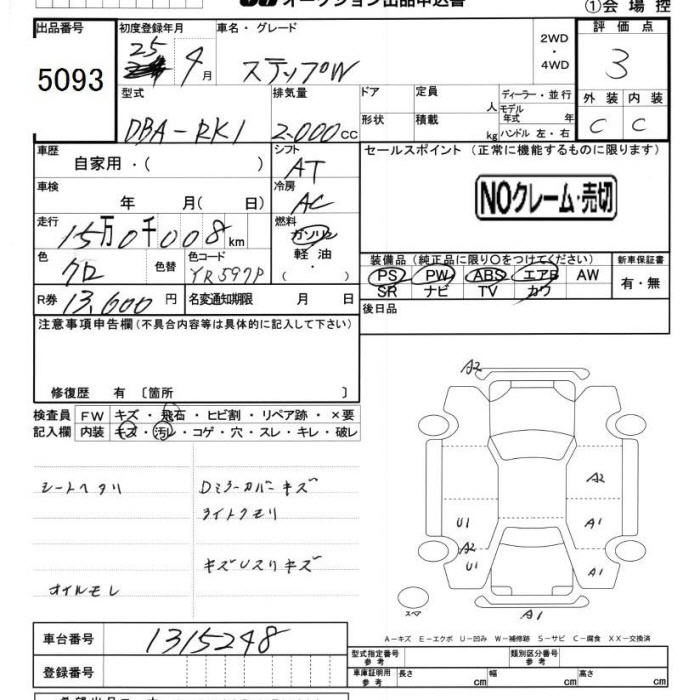 オークション出品申込書
①会場控
出品番号
5093
初度登録年月
25 4月
車名・グレード
ステップW
2WD
・
4WD
評価点
3
外装 内装
C C
型式
DBA-RK1
排気量
2.000cc
ドア
形状
定員 人
積載 kg
ディーラー・並行
モデル年式 年
ハンドル 左・右
車歴
自家用・( )
車検
年 月( 日)
走行
15万0千008km
色
クロ
色替
色コード
YR597P
R券 13,600円
名変通知期限 月 日
シフト
AT
冷房
AC
燃料
ガソリン
軽油・
( ・ )
セールスポイント (正常に機能するものに限ります)
NOクレーム・売切
装備品 (純正品に限り○をつけてください)
PS PW ABS エアB AW
SR ナビ TV カワ
新車保証書
有・無
後日品
注意事項申告欄(不具合内容等は具体的に記入して下さい)
修復歴 有 〔箇所 〕
検査員記入欄
FW キズ・飛石・ヒビ割・リペア跡・×要
内装 キズ・汚レ・コゲ・穴・スレ・キレ・破レ
シートヘタリ
Dミラーカバーキズ
ライトクモリ
キズUスリキズ
オイルモレ
A2
A2
U1
A1
A2
U1
A1
スペア
A1
A-キズ E-エクボ U-凹み W-補修跡 S-サビ C-腐食 XX-交換済
車台番号 1315248
登録番号
型式指定番号 参考
類別区分番号 参考
車庫証明用 参考 長さ cm 幅 cm 高さ cm